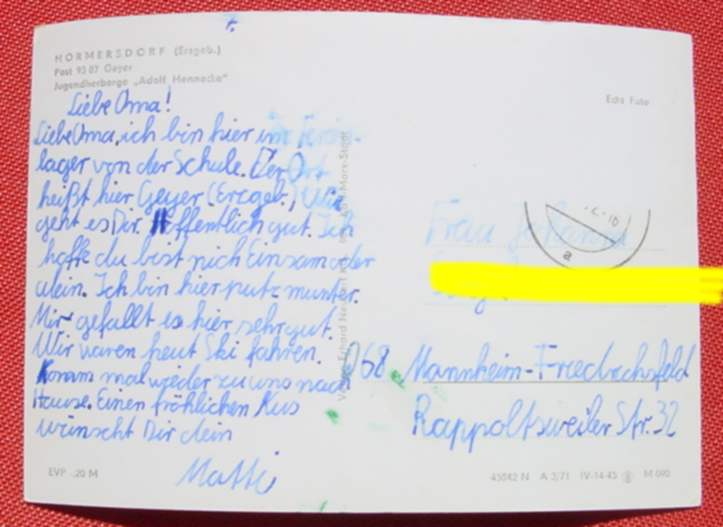 HORMERSDORF (Erzgeb.)
Post 9387 Geyer
Jugendherberge „Adolf Hennecke“
Liebe Oma!
Liebe Oma, ich bin hier im Ferien-
lager von der Schule. Der Ort
heißt hier Geyer (Erzgeb.) Wie
geht es Dir. Hoffentlich gut. Ich
hoffe du bist nich Einsam oder
alein. Ich bin hier putz munter.
Mir gefällt es hier sehr gut.
Wir waren heut Ski fahren.
Komm mal wieder zu uns nach
Hause. Einen fröhlichen Kus
wünscht Dir dein
Matti
EVP -.20 M
Echt Foto
Frau Johanna
D68 Mannheim-Friedrichsfeld
Rappoltsweiler Str. 32
45042 N A 3/71 IV-14-45 M 090